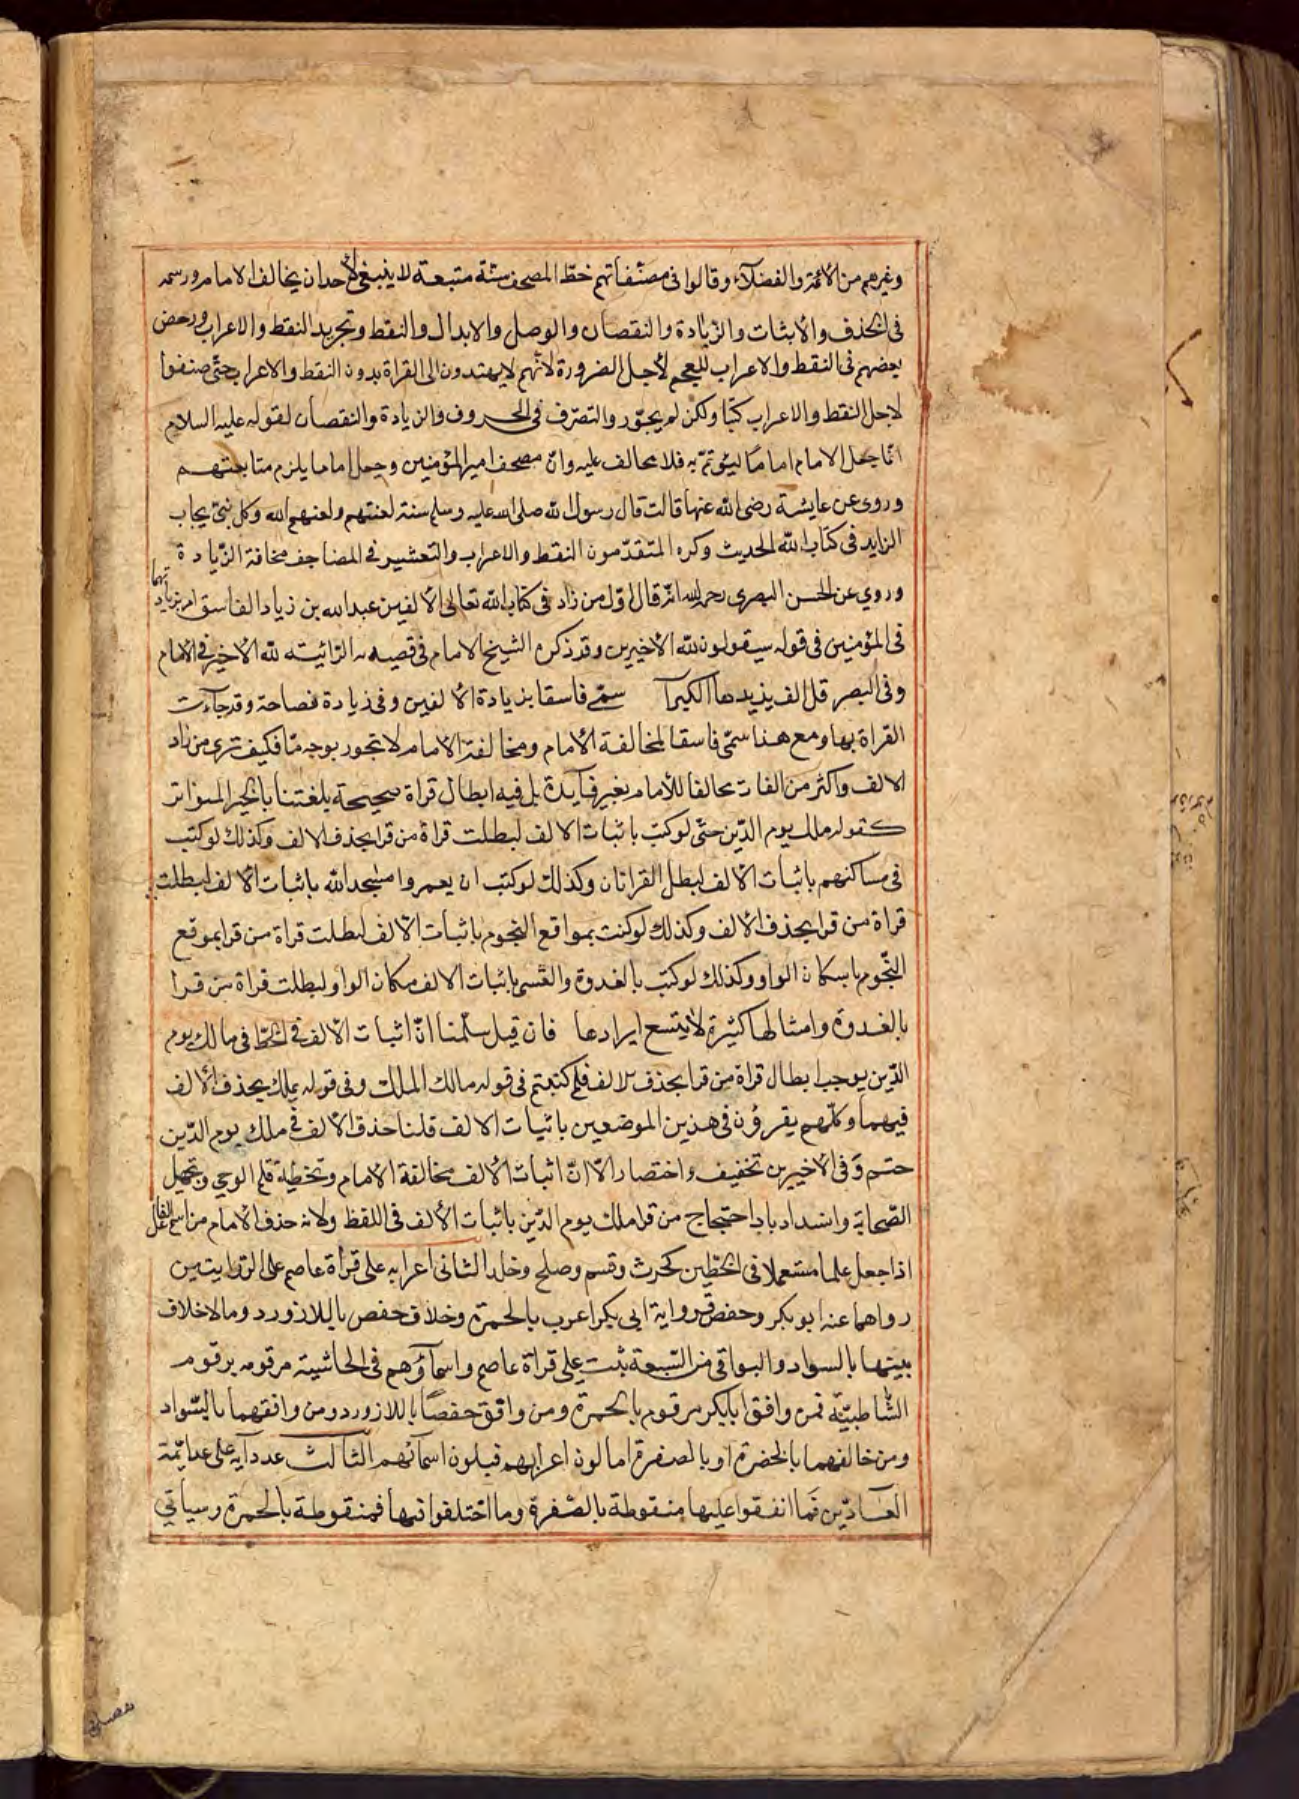 وغيرهم من الأئمة والفضلآء وقالوا فى مصنّفاتهم خطّ المصحف سنّة متبعة لا ينبغى لأحد ان يخالف الامام ورسمه
فى الحذف والأثبات والزّيادة والنقصان والوصل والابدال والنقط وتجريد النقط والاعراب ورخص
بعضهم فى النقط والاعراب للعجم لأجل الضرورة لأنّهم لا يهتدون الى القراة بدون النقط والاعراب حتّى صنفوا
لاجل النقط والاعراب كتبا ولكن لم يجوّزوا التصرّف فى الحروف والزيادة والنقصان لقوله عليه السلام
انّما جعل الامام اماما ليؤتمّ به فلا يخالف عليه وانّ مصحف امير المؤمنين وجعل اماما يلزم متابعتهم
وروى عن عايشة رضى الله عنها قالت قال رسول الله صلى الله عليه وسلم ستة لعنتهم ولعنهم الله وكل نبىّ يجاب
الزايد فى كتاب الله الحديث وكره المتقدّمون النقط والاعراب والتعشير فى المصاحف مخافة الزّيادة
وروي عن الحسن البصرى رحمه الله انّه قال اوّل من زاد فى كتاب الله تعالى الألفين عبد الله بن زياد الفاسق
فى المؤمنين فى قوله سيقولون لله الأخيرين وقد ذكره الشيخ الامام فى قصيدته الرّائيته لله الأخير فى الامام
وفى البصر قل الف يزيدها الكبرا سمّى فاسقا بزيادة الألفين وفى زيادة فصاحة وقد جآءت
القراة بها ومع هذا سمّى فاسقا لمخالفة الأمام ومخالفة الأمام لا تجوز بوجه مّا فكيف ترى من زاد
الالف واكثر من الفات مخالفا للأمام بغير فآيدة بل فيه ابطال قراة صحيحة بلغتنا بالخبر المتواتر
كقوله ملك يوم الدّين حتّى لو كتب باثبات الالف لبطلت قراة من قرا بحذف الالف وكذلك لو كتب
فى مساكنهم باثبات الالف لبطل القراتان وكذلك لو كتب ان يعمروا مسجد الله باثبات الألف لبطلت
قراة من قرا بحذف الألف وكذلك لو كتبت بمواقع النجوم باثبات الالف لبطلت قراة من قرا بموقع
النّجوم باسكان الواو وكذلك لو كتب بالغدوة والعشى باثبات الالف مكان الواو لبطلت قراة من قرا
بالغدوة وامثالها كثيرة لا يتسع ايرادها فان قيل سلّمنا انّ اثبات الألف فى الخطّ فى مالك يوم
الدّين يوجب ابطال قراة من قرا بحذف الالف فلم كتبتم فى قوله مالك الملك وفى قوله بملك بحذف الألف
فيهما وكلّهم يقرؤن فى هذين الموضعين باثبات الالف قلنا حذف الألف فى ملك يوم الدّين
حتم وفى الأخيرين تخفيف واختصار الّا انّ اثبات الألف مخالفة الامام وتخطية قلم الوحى وتجهيل
الصّحابة وانسداد باب احتجاج من قرا ملك يوم الدّين باثبات الألف فى اللفظ ولانه حذف الأمام من اسم الفاعل
اذا جعل علما مستعملا فى الخطّين كحرث وقسم وصلح وخلد الثانى اعرابه على قراة عاصم على الروايتين
رواهما عنه ابو بكر وحفص فرواية ابى بكر اعرب بالحمرة وخلاف حفص باللازورد وما لا خلاف
بينهما بالسواد والبواقى من السّبعة بنيت على قراة عاصم واسمآؤهم فى الحاشية مرقومه برقوم
الشّاطبيّة فمن وافق ابا بكر مرقوم بالحمرة ومن وافق حفصًا باللازورد ومن وافقهما بالسّواد
ومن خالفهما بالخضرة او بالصفرة اما لون اعرابهم فبلون اسمآئهم الثالث عدد آيه على عد ايّمة
العآدّين فما اتفقوا عليها منقوطة بالصّفرة وما اختلفوا فيها فمنقوطة بالحمرة وسياتي